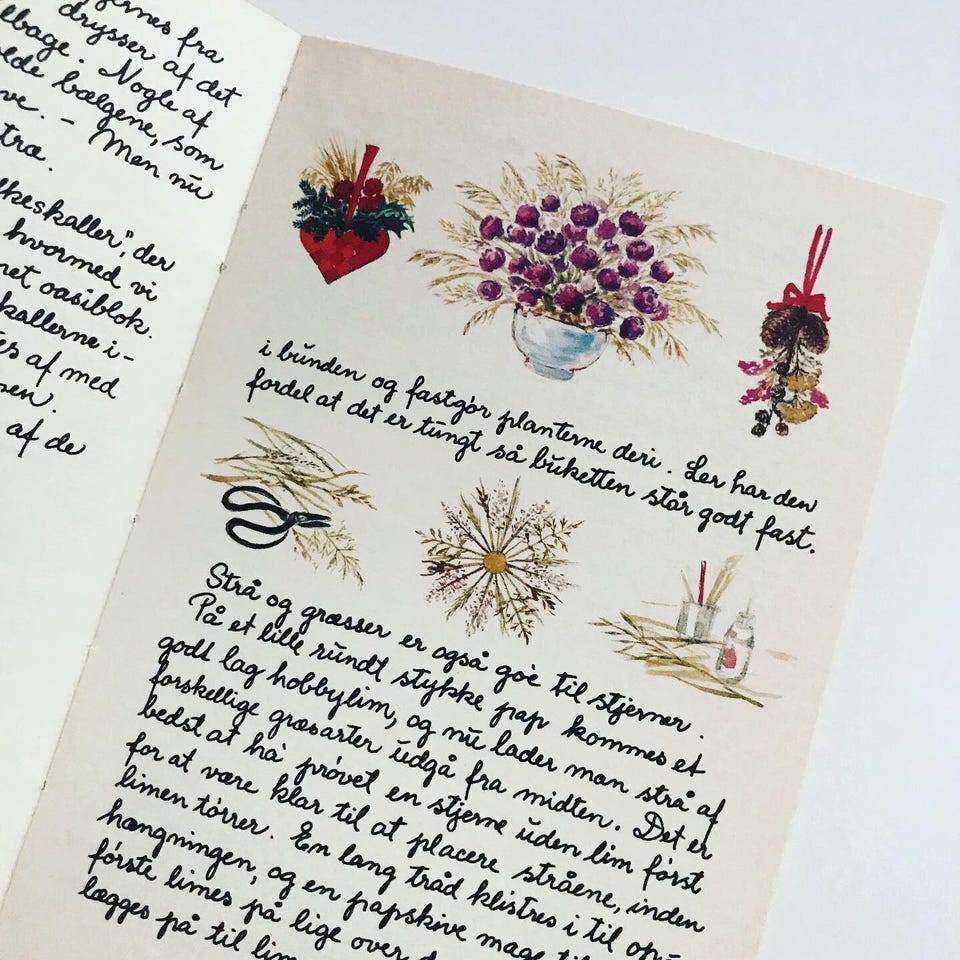 fra
drysser af det
Nogle af
bælgene, som
ve. - Men nu
keskaller", der
hvormed vi
oasiblok.
kallerne i-
af med
af de
i bunden og fastgør planterne deri. Ler har den
fordel at det er tungt så buketten står godt fast.
Strå og græsser er også gode til stjerner.
På et lille rundt stykke pap kommes et
godt lag hobbylim, og nu lader man strå af
forskellige græsarter udgå fra midten. Det er
bedst at ha' prøvet en stjerne uden lim først
for at være klar til at placere stråene, inden
limen tørrer. En lang tråd klistres i til op-
hængningen, og en papskive mage til
første limes på lige over
lægges på til